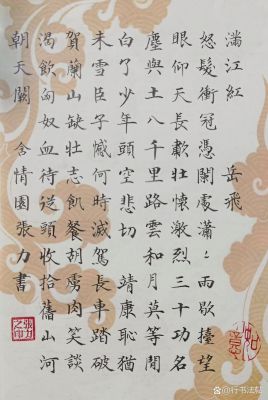 滿江紅 岳飛
怒髮衝冠憑闌處瀟々雨歇擡望
眼仰天長歗壯懷激烈三十功名
塵與土八千里路雲和月莫等閒
白了少年頭空悲切 靖康恥猶
未雪臣子憾何時滅駕長車踏破
賀蘭山缺壯志飢餐胡虜肉笑談
渴飲匈奴血待從頭收拾舊山河
朝天闕 含情園張力書
張力之印
如意
@行书法帖